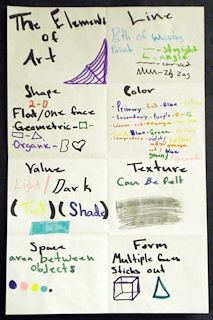 The Elements
of
Art
Line
Path of moving
Point
straight
angle
curved
Zig zag
Shape
2-D
Flat/One face
Geometric-
Organic-
Color
Primary- Red-Blue-
Secondary-Purple-O-G
Blue-Green
Value
Light/Dark
(Tint)(Shade)
Texture
Can Be felt
Space
area between
objects
Form
Multiple faces
Sticks out